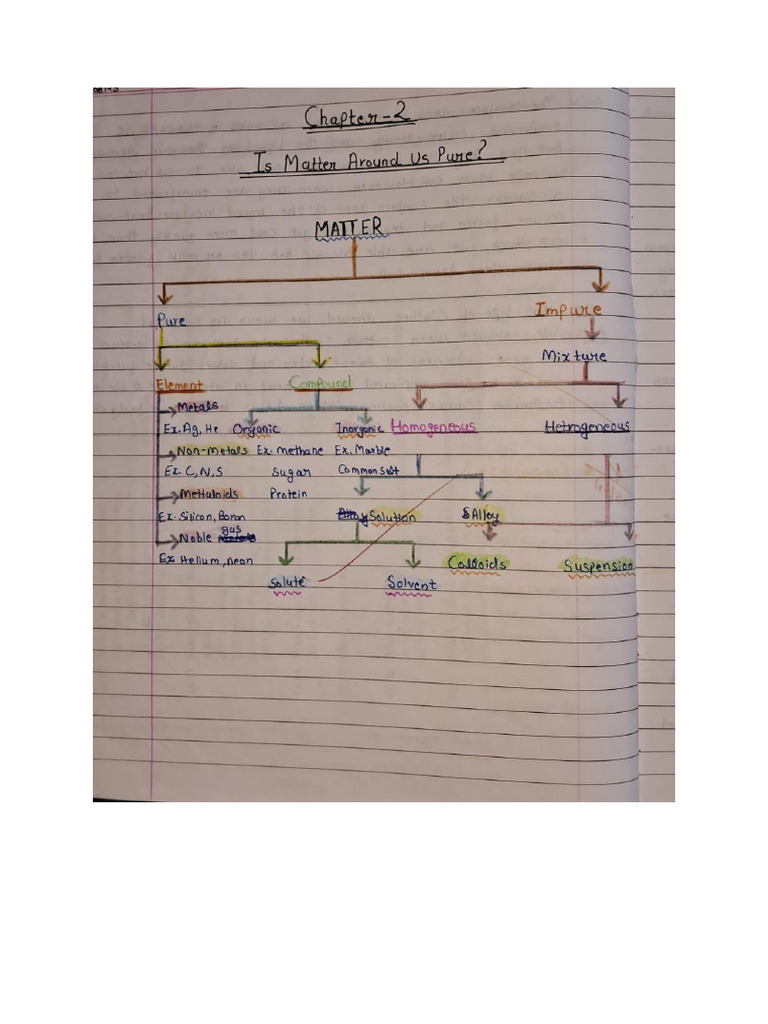 Chapter-2
Is Matter Around Us Pure?
MATTER
Pure
Impure
Mixture
Element
Compound
Metals
Ex. Ag, He
Organic
Inorganic
Homogeneous
Hetrogeneous
Non-metals
Ex. methane
Ex. Marble
Ex. C, N, S
Sugar
Common Salt
Metlaloids
Protein
Ex. Silicon, Boron
Solution
& Alloy
Noble gas
Ex Helium, neon
Colloids
Suspension
Solute
Solvent